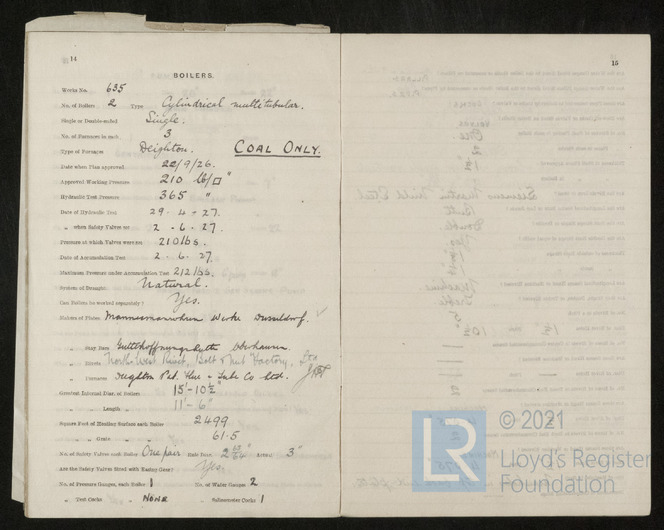 14
BOILERS.
Works No. 635
No. of Boilers 2 Type Cylindrical multitubular.
Single or Double-ended Single.
No. of Furnaces in each 3
Type of Furnaces Deighton. COAL ONLY.
Date when Plan approved 22/9/26.
Approved Working Pressure 210 lb/□"
Hydraulic Test Pressure 365 "
Date of Hydraulic Test 29 - 4 - 27.
„ when Safety Valves set 2 - 6 - 27.
Pressure at which Valves were set 210 lbs.
Date of Accumulation Test 2 - 6 - 27.
Maximum Pressure under Accumulation Test 212 lbs.
System of Draught Natural.
Can Boilers be worked separately? Yes.
Makers of Plates Werke Dusseldorf.
„ Stay Bars Oberhausen.
„ Rivets North West Rivet, Bolt & Nut Factory,
„ Furnaces Deighton Pat. Flue & Tube Co Ltd.
Greatest Internal Diam. of Boilers 15'-10½"
„ „ Length „ 11'-6"
Square Feet of Heating Surface each Boiler 2499
„ „ Grate „ „ 61.5
No. of Safety Valves each Boiler One pair Rule Diam. Actual 3"
Are the Safety Valves fitted with Easing Gear? Yes.
No. of Pressure Gauges, each Boiler 1 No. of Water Gauges 2
„ Test Cocks „ NONE „ Salinometer Cocks 1
15
© 2021
LR
Lloyd's Register
Foundation